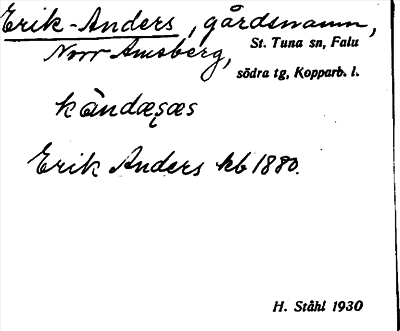 Erik-Anders, gårdsnamn,
Norr Amsberg, St. Tuna sn, Falu
södra tg, Kopparb. l.
Erik Anders kb 1880.
H. Ståhl 1930